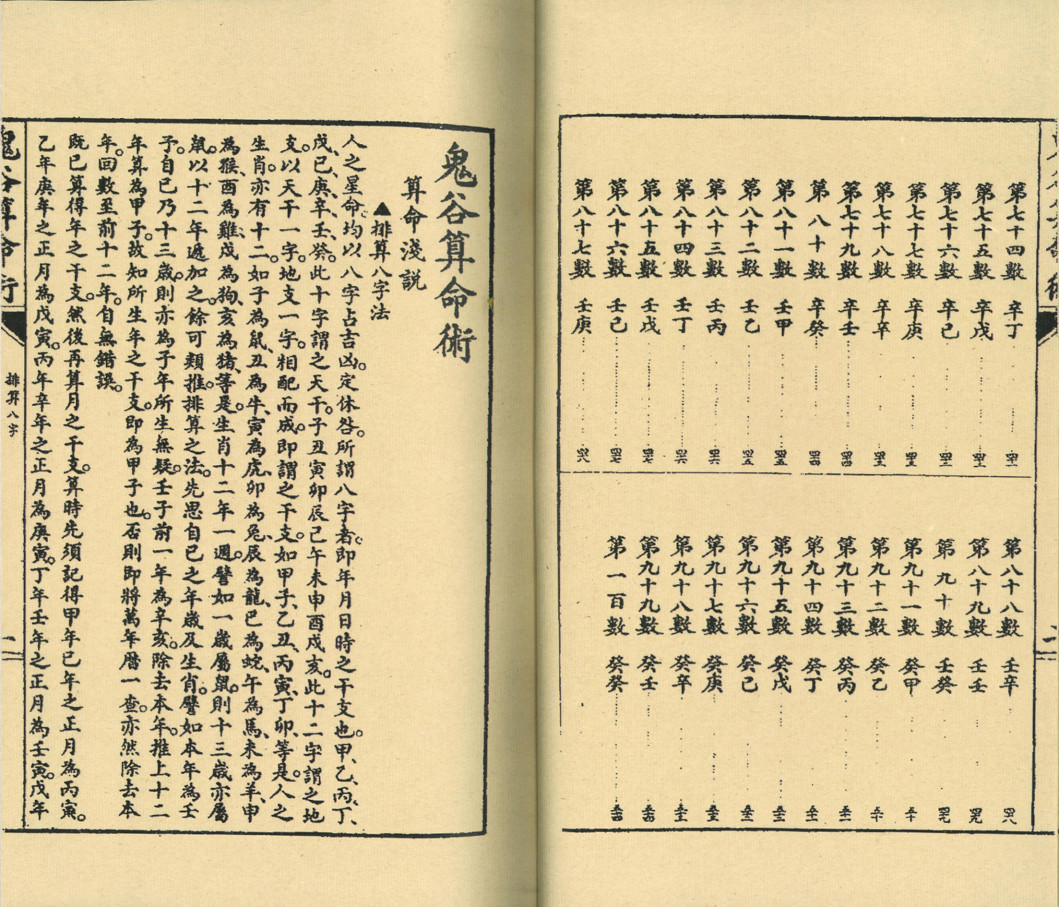 第七十四數 辛丁
第七十五數 辛戊
第七十六數 辛己
第七十七數 辛庚
第七十八數 辛辛
第七十九數 辛壬
第八十數 辛癸
第八十一數 壬甲
第八十二數 壬乙
第八十三數 壬丙
第八十四數 壬丁
第八十五數 壬戊
第八十六數 壬己
第八十七數 壬庚
第八十八數 壬辛
第八十九數 壬壬
第九十數 壬癸
第九十一數 癸甲
第九十二數 癸乙
第九十三數 癸丙
第九十四數 癸丁
第九十五數 癸戊
第九十六數 癸己
第九十七數 癸庚
第九十八數 癸辛
第九十九數 癸壬
第一百數 癸癸
鬼谷算命術
算命淺説
▲排算八字法
人之星命、均以八字占吉凶。定休咎。所謂八字者。即年月日時之干支也。甲、乙、丙、丁、
戊、己、庚、辛、壬、癸。此十字謂之天干。子丑寅卯辰巳午未申酉戌亥。此十二字謂之地
支。以天干一字。地支一字。相配而成。即謂之干支。如甲子、乙丑、丙寅、丁卯、等是。人之
生肖。亦有十二。如子為鼠、丑為牛、寅為虎、卯為兔、辰為龍、巳為蛇、午為馬、未為羊、申
為猴、酉為雞、戌為狗、亥為豬、等是。生肖十二年一週。譬如一歲屬鼠。則十三歲亦屬
鼠。以十二年遞加之。餘可類推。排算之法。先思自己之年歲及生肖。譬如本年為壬
子。自己乃十三歲。則亦為子年所生無疑。壬子前一年為辛亥。除去本年。推上十二
年。算為甲子。故知所生年之干支。即為甲子也。否則即將萬年曆一查。亦然除去本
年。回數至前十二年。自無錯誤。
既已算得年之干支。然後再算月之干支。算時先須記得甲年己年之正月為丙寅。
乙年庚年之正月為戊寅。丙年辛年之正月為庚寅。丁年壬年之正月為壬寅。戊年
鬼谷算命術
排算八字
一